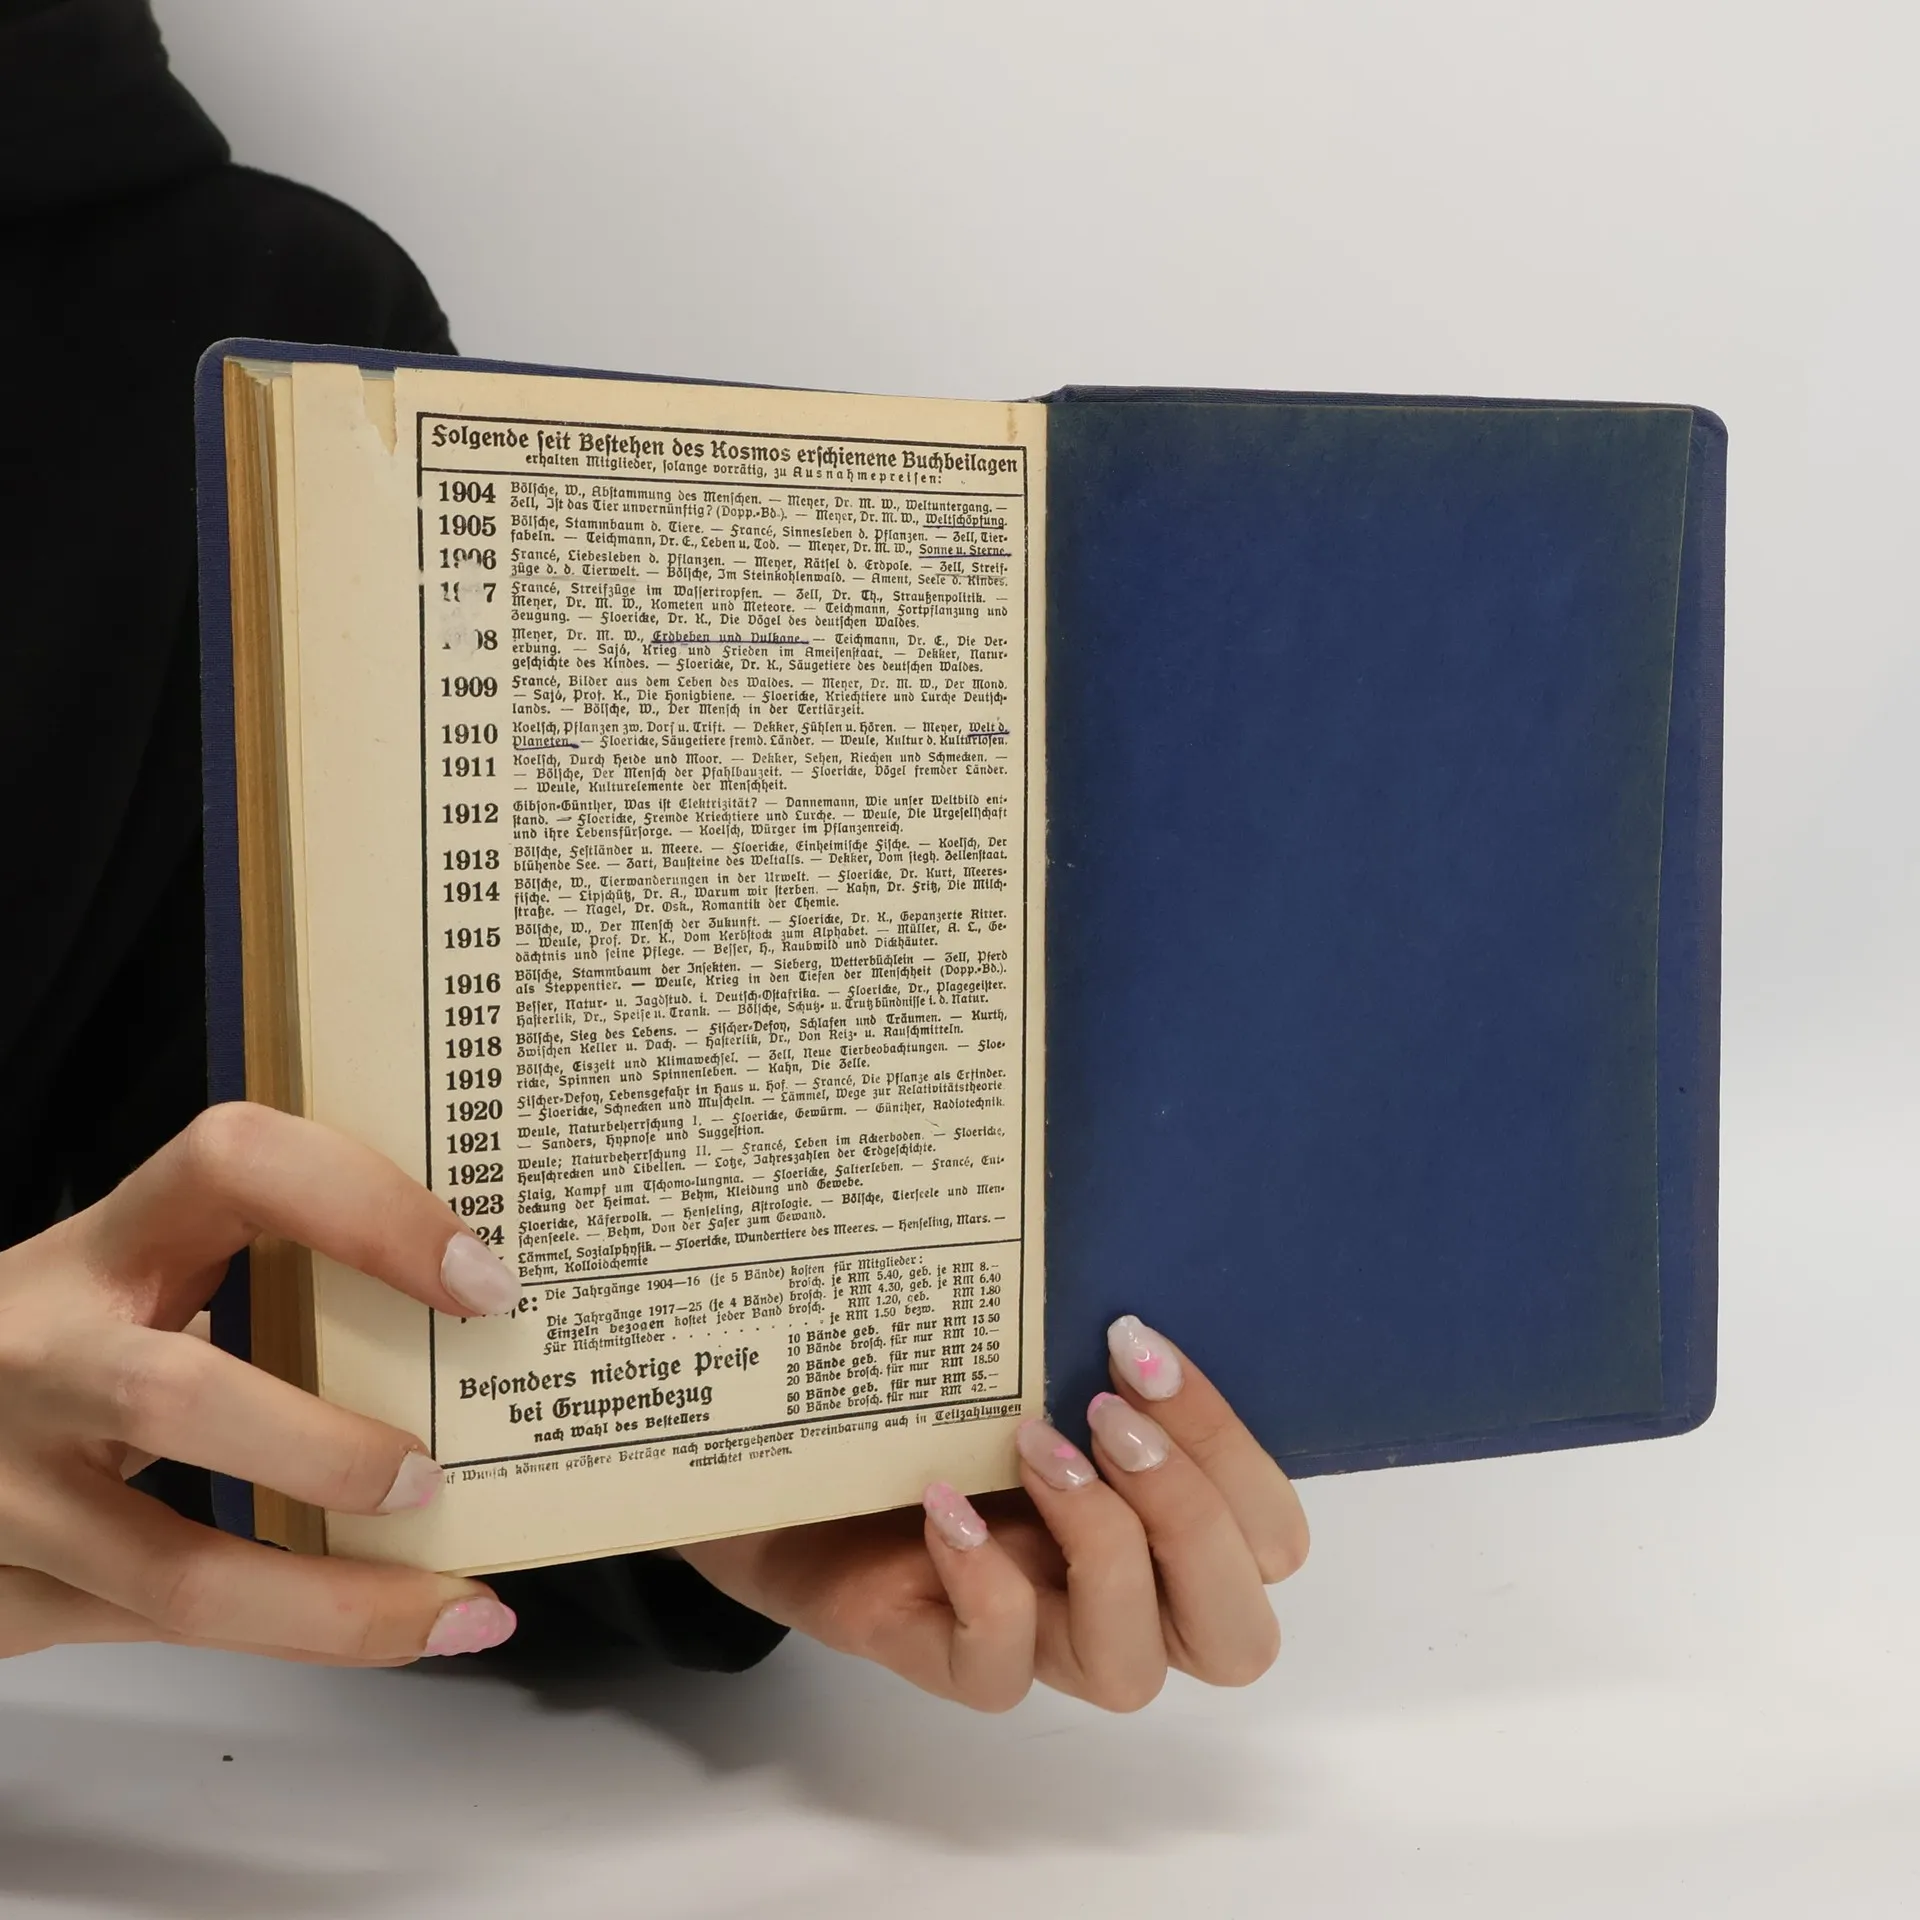 Folgende ſeit Beſtehen des Kosmos erſchienene Buchbeilagen
erhalten Mitglieder, ſolange vorrätig, zu Ausnahmepreiſen:
1904 Bölſche, W., Abſtammung des Menſchen. — Meyer, Dr. M. W., Weltuntergang. —
Zell, Iſt das Tier unvernünftig? (Dopp.-Bd.). — Meyer, Dr. M. W., Weltſchöpfung.
1905 Bölſche, Stammbaum d. Tiere. — Francé, Sinnesleben d. Pflanzen. — Zell, Tier-
fabeln. — Teichmann, Dr. E., Leben u. Tod. — Meyer, Dr. M. W., Sonne u. Sterne.
1906 Francé, Liebesleben d. Pflanzen. — Meyer, Rätſel d. Erdpole. — Zell, Streif-
züge d. d. Tierwelt. — Bölſche, Im Steinkohlenwald. — Ament, Seele d. Kindes.
7 Francé, Streifzüge im Waſſertropfen. — Zell, Dr. Th., Straußenpolitik. —
Meyer, Dr. M. W., Kometen und Meteore. — Teichmann, Fortpflanzung und
Zeugung. — Floericke, Dr. K., Die Vögel des deutſchen Waldes.
08 Meyer, Dr. M. W., Erdbeben und Vulkane. — Teichmann, Dr. E., Die Ver-
erbung. — Sajó, Krieg und Frieden im Ameiſenſtaat. — Dekker, Natur-
geſchichte des Kindes. — Floericke, Dr. K., Säugetiere des deutſchen Waldes.
1909 Francé, Bilder aus dem Leben des Waldes. — Meyer, Dr. M. W., Der Mond.
— Sajó, Prof. K., Die Honigbiene. — Floericke, Kriechtiere und Lurche Deutſch-
lands. — Bölſche, W., Der Menſch in der Tertiärzeit.
1910 Koelſch, Pflanzen zw. Dorf u. Trift. — Dekker, Fühlen u. Hören. — Meyer, Welt d.
Planeten. — Floericke, Säugetiere fremd. Länder. — Weule, Kultur d. Kulturloſen.
1911 Koelſch, Durch Heide und Moor. — Dekker, Sehen, Riechen und Schmecken. —
— Bölſche, Der Menſch der Pfahlbauzeit. — Floericke, Vögel fremder Länder.
— Weule, Kulturelemente der Menſchheit.
1912 Gibſon-Günther, Was iſt Elektrizität? — Dannemann, Wie unſer Weltbild ent-
ſtand. — Floericke, Fremde Kriechtiere und Lurche. — Weule, Die Urgeſellſchaft
und ihre Lebensfürſorge. — Koelſch, Würger im Pflanzenreich.
1913 Bölſche, Feſtländer u. Meere. — Floericke, Einheimiſche Fiſche. — Koelſch, Der
blühende See. — Zart, Bauſteine des Weltalls. — Dekker, Vom ſiegh. Zellenſtaat.
1914 Bölſche, W., Tierwanderungen in der Urwelt. — Floericke, Dr. Kurt, Meeres-
fiſche. — Lipſchütz, Dr. A., Warum wir ſterben. — Kahn, Dr. Fritz, Die Milch-
ſtraße. — Nagel, Dr. Osk., Romantik der Chemie.
1915 Bölſche, W., Der Menſch der Zukunft. — Floericke, Dr. K., Gepanzerte Ritter.
— Weule, Prof. Dr. K., Vom Kerbſtock zum Alphabet. — Müller, A. L., Ge-
dächtnis und ſeine Pflege. — Beſſer, H., Raubwild und Dickhäuter.
1916 Bölſche, Stammbaum der Inſekten. — Sieberg, Wetterbüchlein — Zell, Pferd
als Steppentier. — Weule, Krieg in den Tiefen der Menſchheit (Dopp.-Bd.).
1917 Beſſer, Natur- u. Jagdſtud. i. Deutſch-Oſtafrika. — Floericke, Dr., Plagegeiſter.
Haſterlik, Dr., Speiſe u. Trank. — Bölſche, Schutz- u. Trutzbündniſſe i. d. Natur.
1918 Bölſche, Sieg des Lebens. — Fiſcher-Defoy, Schlafen und Träumen. — Kurth,
Zwiſchen Keller u. Dach. — Haſterlik, Dr., Von Reiz- u. Rauſchmitteln.
1919 Bölſche, Eiszeit und Klimawechſel. — Zell, Neue Tierbeobachtungen. — Floe-
ricke, Spinnen und Spinnenleben. — Kahn, Die Zelle.
1920 Fiſcher-Defoy, Lebensgefahr in Haus u. Hof. — Francé, Die Pflanze als Erfinder.
— Floericke, Schnecken und Muſcheln. — Lämmel, Wege zur Relativitätstheorie.
1921 Weule, Naturbeherrſchung I. — Floericke, Gewürm. — Günther, Radiotechnik.
— Sanders, Hypnoſe und Suggeſtion.
1922 Weule; Naturbeherrſchung II. — Francé, Leben im Ackerboden. — Floericke,
Heuſchrecken und Libellen. — Lotze, Jahreszahlen der Erdgeſchichte.
1923 Flaig, Kampf um Tſchomo-lungma. — Floericke, Falterleben. — Francé, Ent-
deckung der Heimat. — Behm, Kleidung und Gewebe.
24 Floericke, Käfervolk. — Henſeling, Aſtrologie. — Bölſche, Tierſeele und Men-
ſchenſeele. — Behm, Von der Faſer zum Gewand.
Lämmel, Sozialphyſik. — Floericke, Wundertiere des Meeres. — Henſeling, Mars. —
Behm, Kolloidchemie
ſe: Die Jahrgänge 1904—16 (je 5 Bände) koſten für Mitglieder:
broſch. je RM 5.40, geb. je RM 8.—
Die Jahrgänge 1917—25 (je 4 Bände) broſch. je RM 4.30, geb. je RM 6.40
Einzeln bezogen koſtet jeder Band broſch. RM 1.20, geb. RM 1.80
Für Nichtmitglieder . . . . . . . . . . je RM 1.50 bezw. RM 2.40
Beſonders niedrige Preiſe
bei Gruppenbezug
nach Wahl des Beſtellers
10 Bände geb. für nur RM 13 50
10 Bände broſch. für nur RM 10.—
20 Bände geb. für nur RM 24 50
20 Bände broſch. für nur RM 18.50
50 Bände geb. für nur RM 55.—
50 Bände broſch. für nur RM 42.—
uf Wunſch können größere Beträge nach vorhergehender Vereinbarung auch in Teilzahlungen
entrichtet werden.